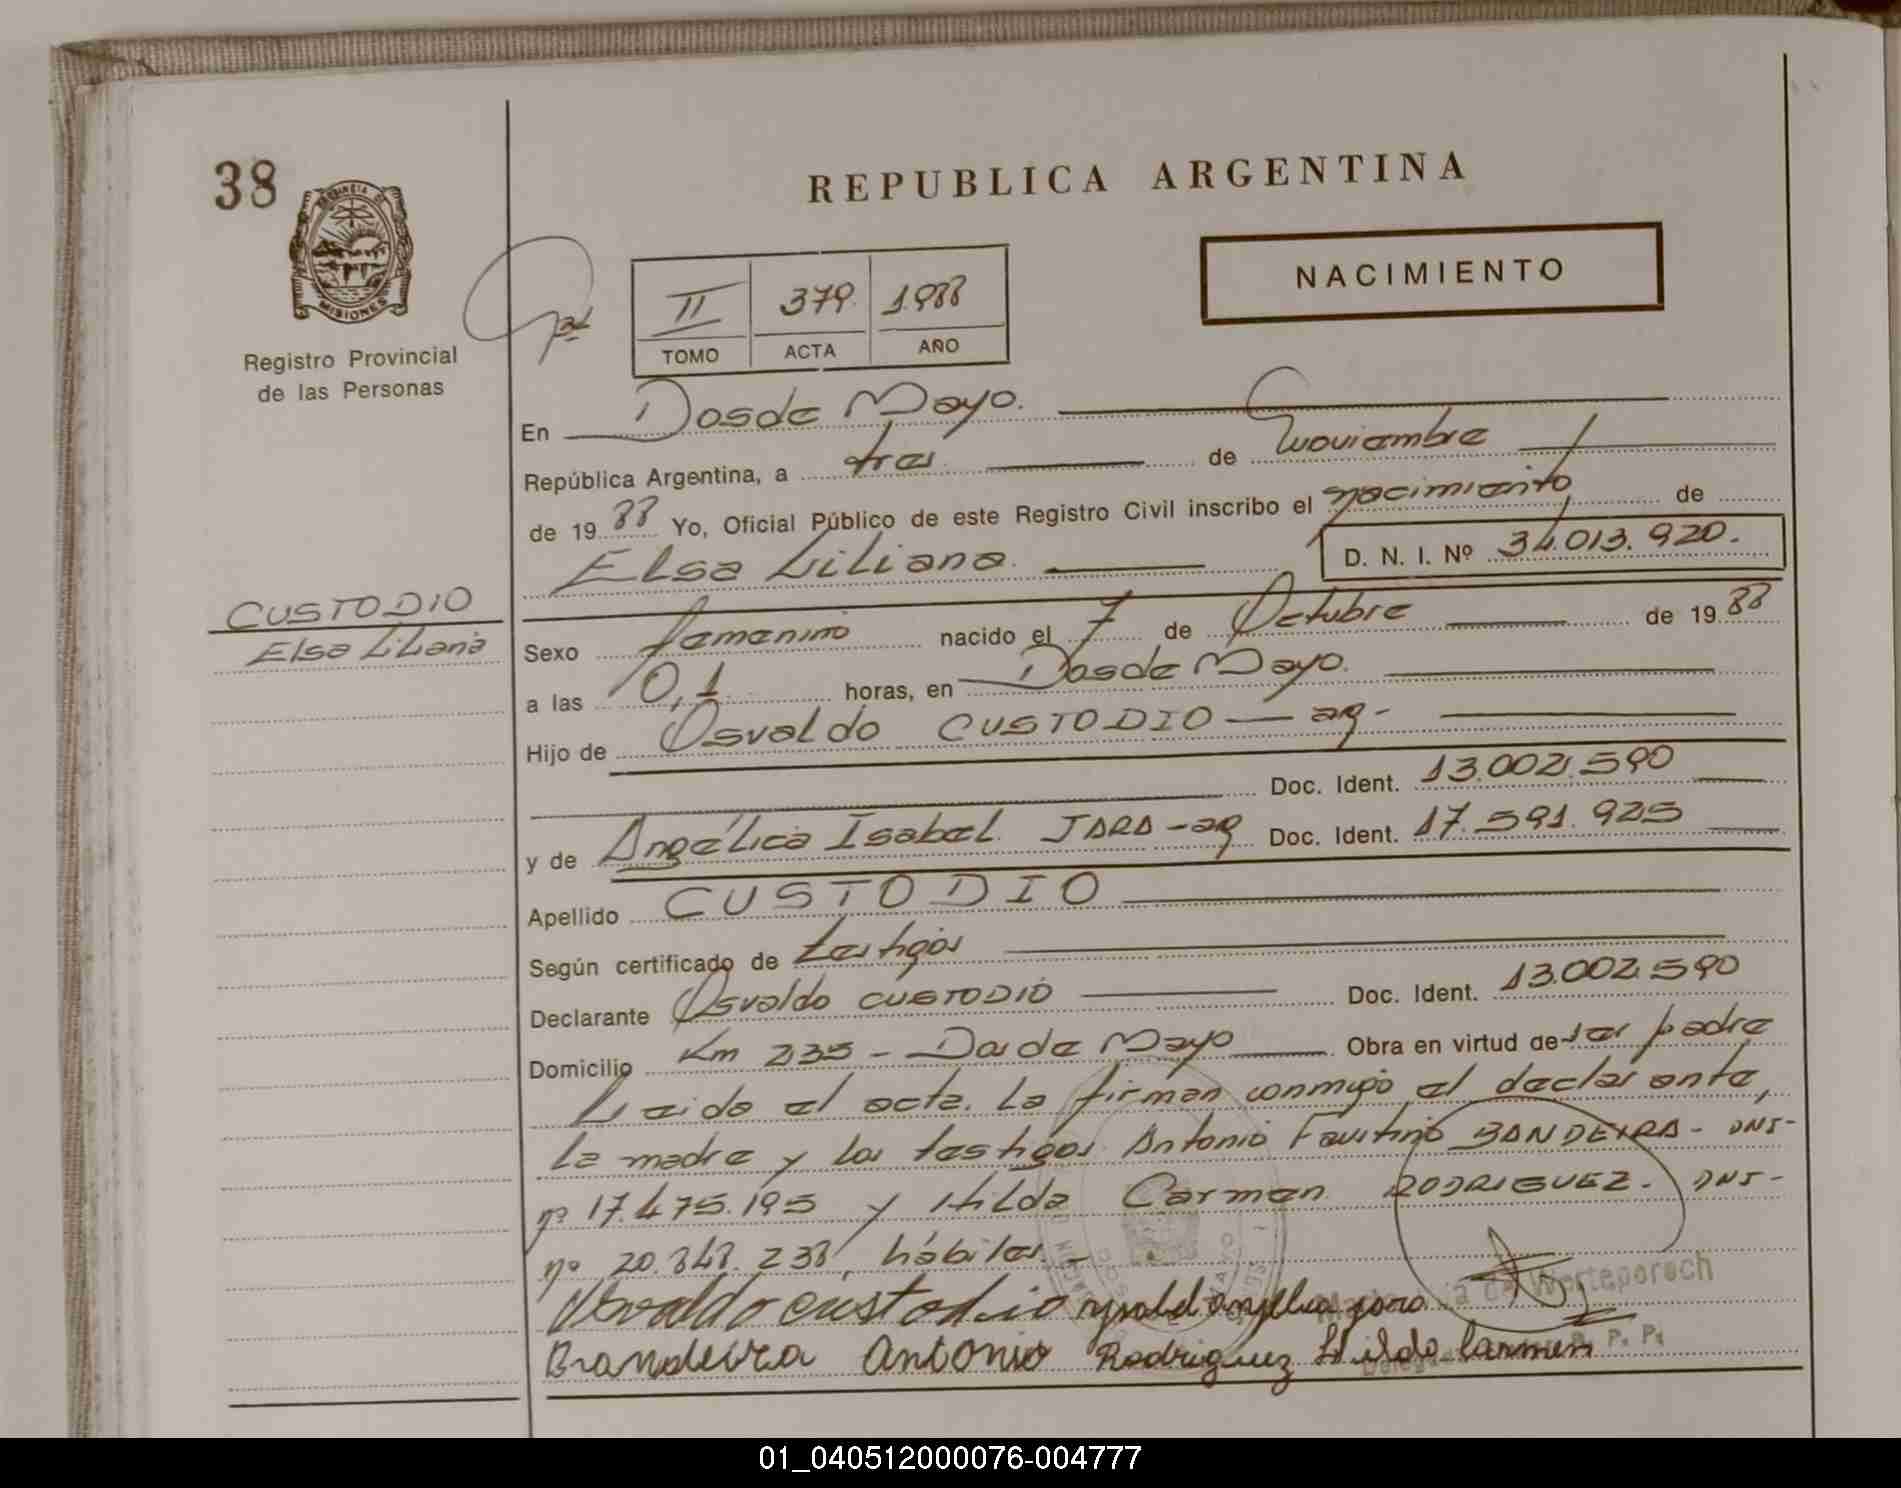 38
PROVINCIA DE MISIONES
Registro Provincial
de las Personas
REPUBLICA ARGENTINA
NACIMIENTO
II 379. 1.988
TOMO ACTA AÑO
En Dos de Mayo.
República Argentina, a tres de noviembre
de 1988 Yo, Oficial Público de este Registro Civil inscribo el nacimiento de
Elsa Liliana. D. N. I. Nº 34.013.920.
CUSTODIO
Elsa Liliana
Sexo femenino nacido el 7 de Octubre de 1988
a las 0,1 horas, en Dos de Mayo.
Hijo de Osvaldo CUSTODIO — ag-
Doc. Ident. 13.002.590
y de Angélica Isabel JARA -ag Doc. Ident. 17.591.925
Apellido CUSTODIO
Según certificado de testigos
Declarante Osvaldo CUSTODIO Doc. Ident. 13.002.590
Domicilio Km 235 - Dos de Mayo Obra en virtud de ser padre
Leida el acta, la firman conmigo el declarante,
la madre y los testigos Antonio Faustino BANDEIRA - DNI-
nº 17.475.195 y Hilda Carmen RODRIGUEZ - DNI-
nº 20.348.238, hábiles.-
Osvaldo custodio Ysabel angelica jara
Brandeira Antonio Rodriguez Hilda Carmen
de Werteporoch
01_040512000076-004777